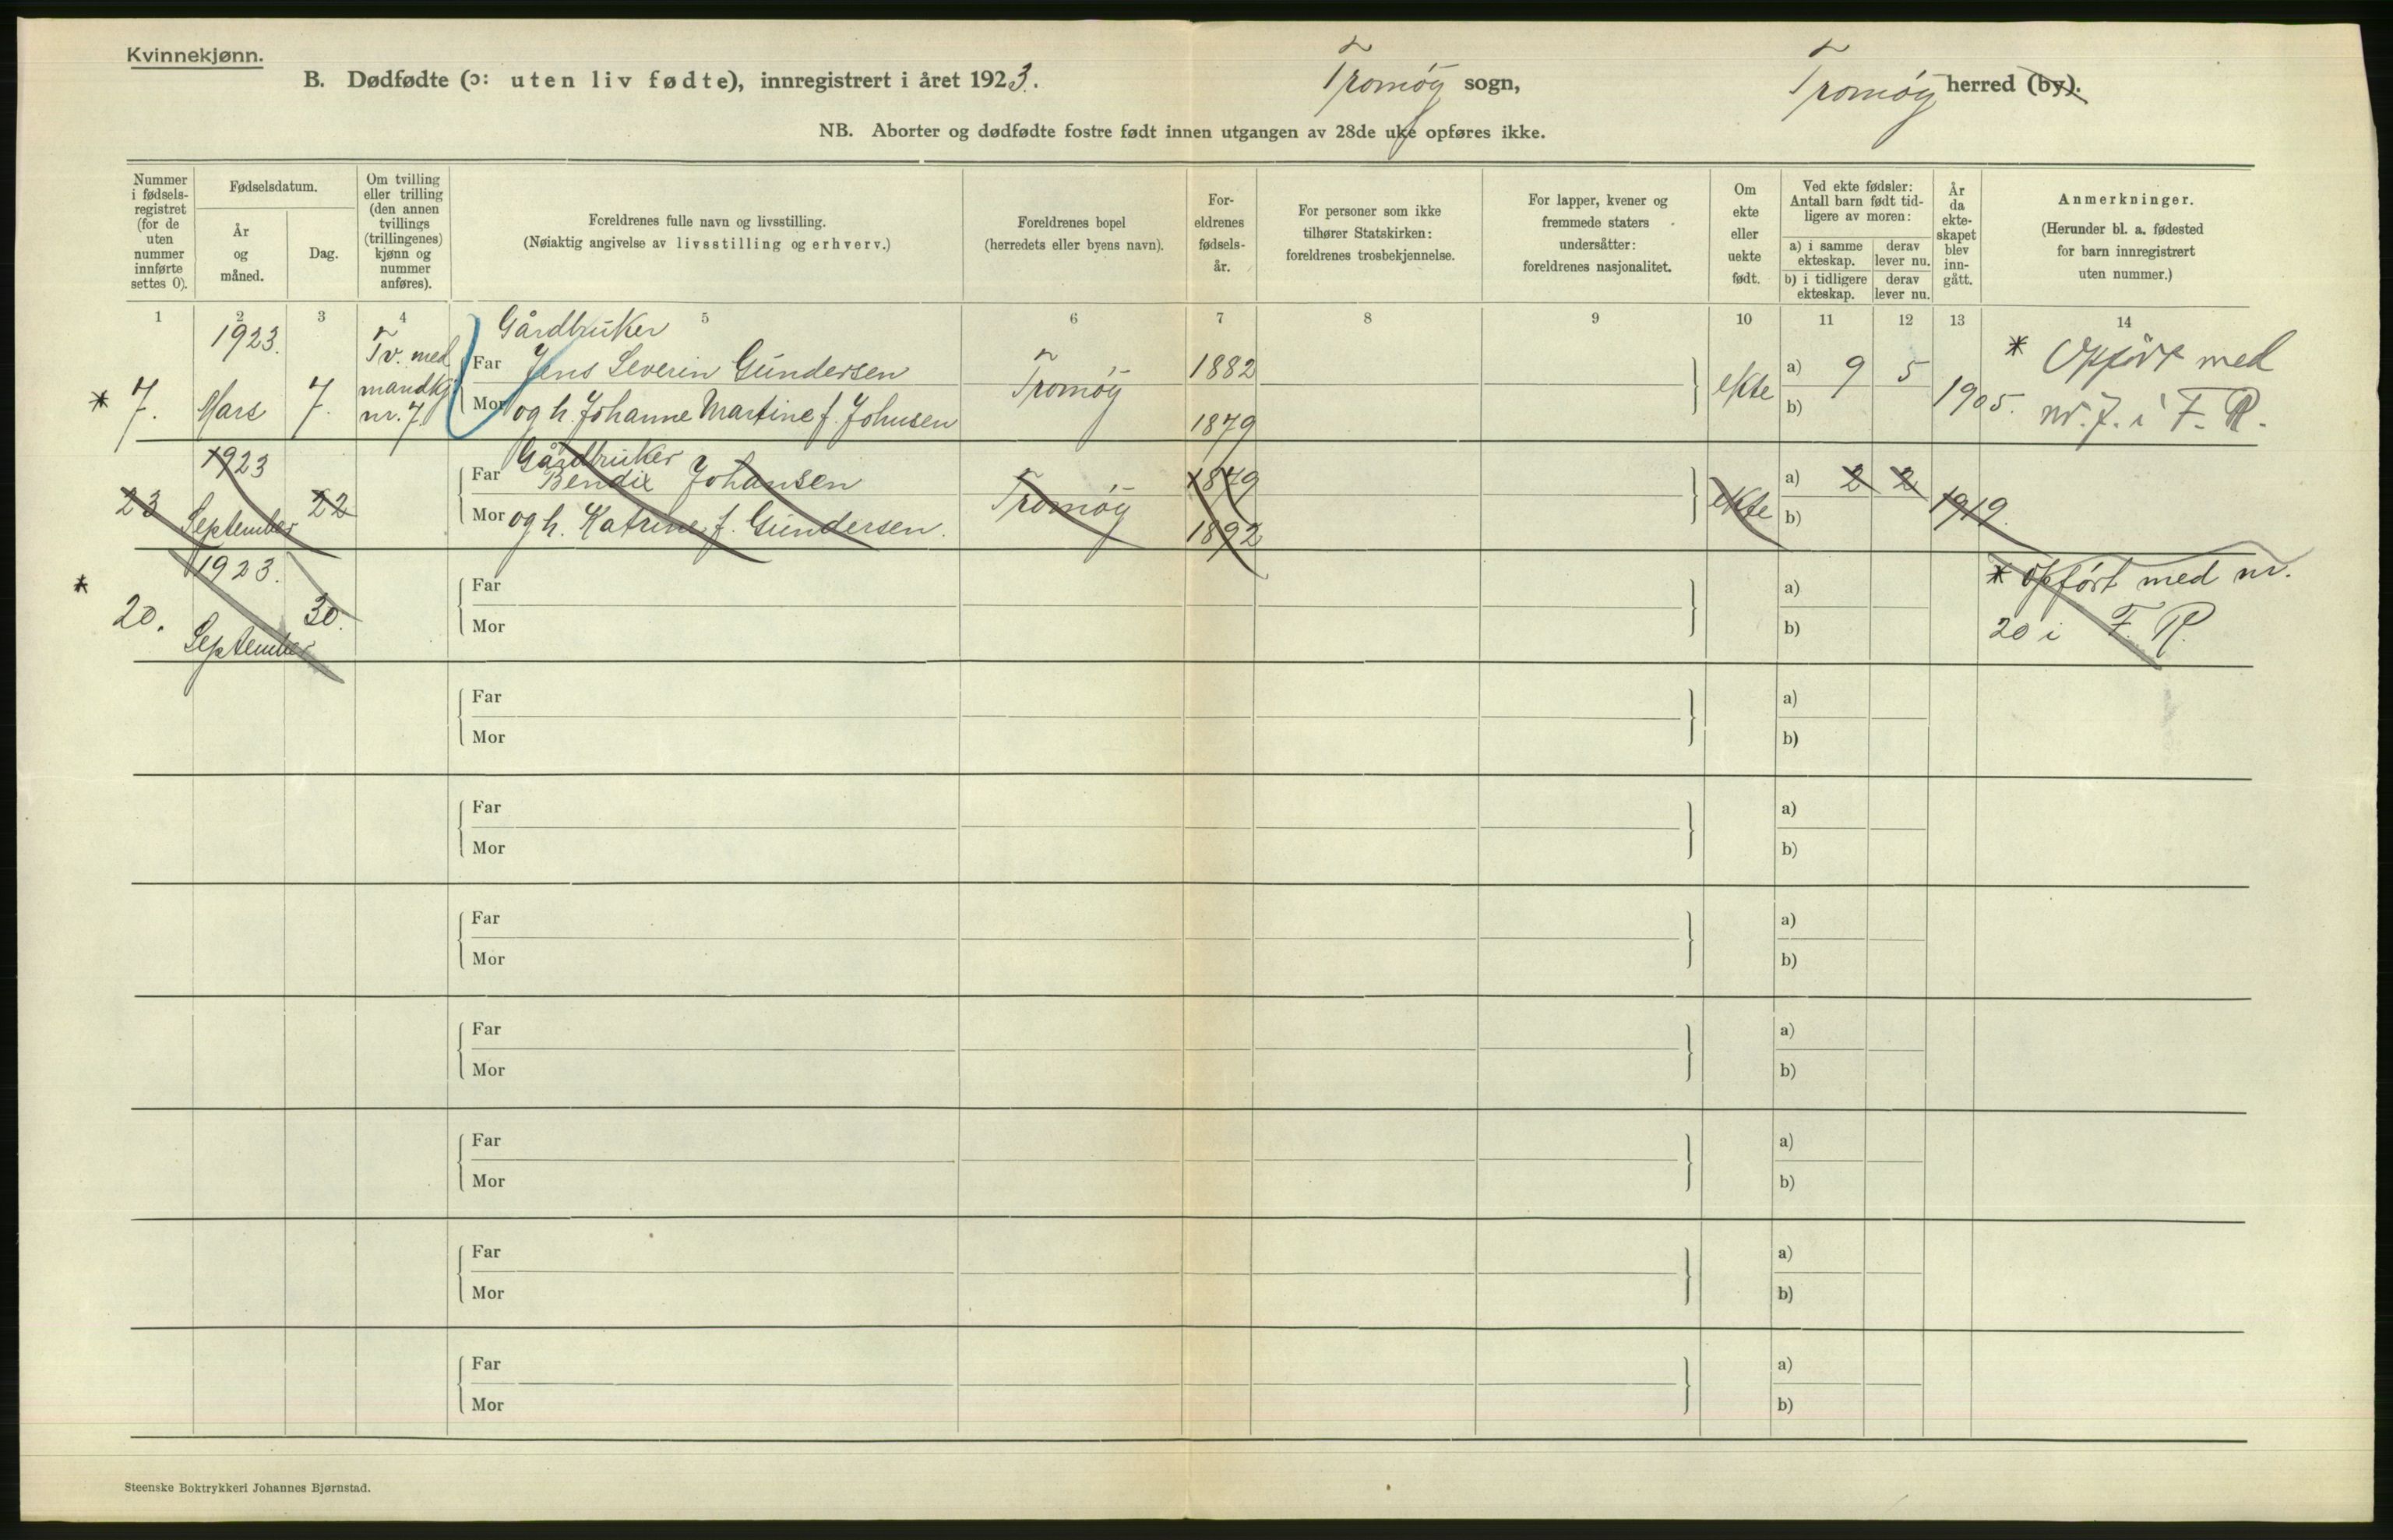 Kvinnekjønn.
B. Dødfødte (ɔ: uten liv fødte), innregistrert i året 1923. Tromøy sogn, Tromøy herred (by).
NB. Aborter og dødfødte fostre født innen utgangen av 28de uke opføres ikke.
Nummer
i fødsels-
registret
(for de
uten
nummer
innførte
settes 0).
Fødselsdatum.
År
og
måned.
Dag.
Om tvilling
eller trilling
(den annen
tvillings
(trillingenes)
kjønn og
nummer
anføres).
Foreldrenes fulle navn og livsstilling.
(Nøiaktig angivelse av livsstilling og erhverv.)
Foreldrenes bopel
(herredets eller byens navn).
For-
eldrenes
fødsels-
år.
For personer som ikke
tilhører Statskirken:
foreldrenes trosbekjennelse.
For lapper, kvener og
fremmede staters
undersåtter:
foreldrenes nasjonalitet.
Om
ekte
eller
uekte
født.
Ved ekte fødsler:
Antall barn født tid-
ligere av moren:
a) i samme
ekteskap.
derav
lever nu.
b) i tidligere
ekteskap.
derav
lever nu.
År
da
ekte-
skapet
blev
inn-
gått.
Anmerkninger.
(Herunder bl. a. fødested
for barn innregistrert
uten nummer.)
1 2 3 4 5 6 7 8 9 10 11 12 13 14
1923.
* 7. Mars 7.
Tv. med
mandkj.
nr. 7
Gårdbruker
Far Jens Severin Gundersen
Mor og h. Johanne Martine f. Johnsen
Tromøy
1882
1879
ekte
a) 9 5
b)
1905.
* Opført med
nr. 7. i F. R.
1923
23 September 22
Gårdbruker
Far Bendix Johansen
Mor og h. Katrine f. Gundersen.
Tromøy
1879
1892
ekte
a) 2 2
b)
1919.
1923.
* 20. September 30.
Far
Mor
a)
b)
* opført med nr.
20 i F. R.
Far
Mor
a)
b)
Far
Mor
a)
b)
Far
Mor
a)
b)
Far
Mor
a)
b)
Far
Mor
a)
b)
Far
Mor
a)
b)
Far
Mor
a)
b)
Steenske Boktrykkeri Johannes Bjørnstad.